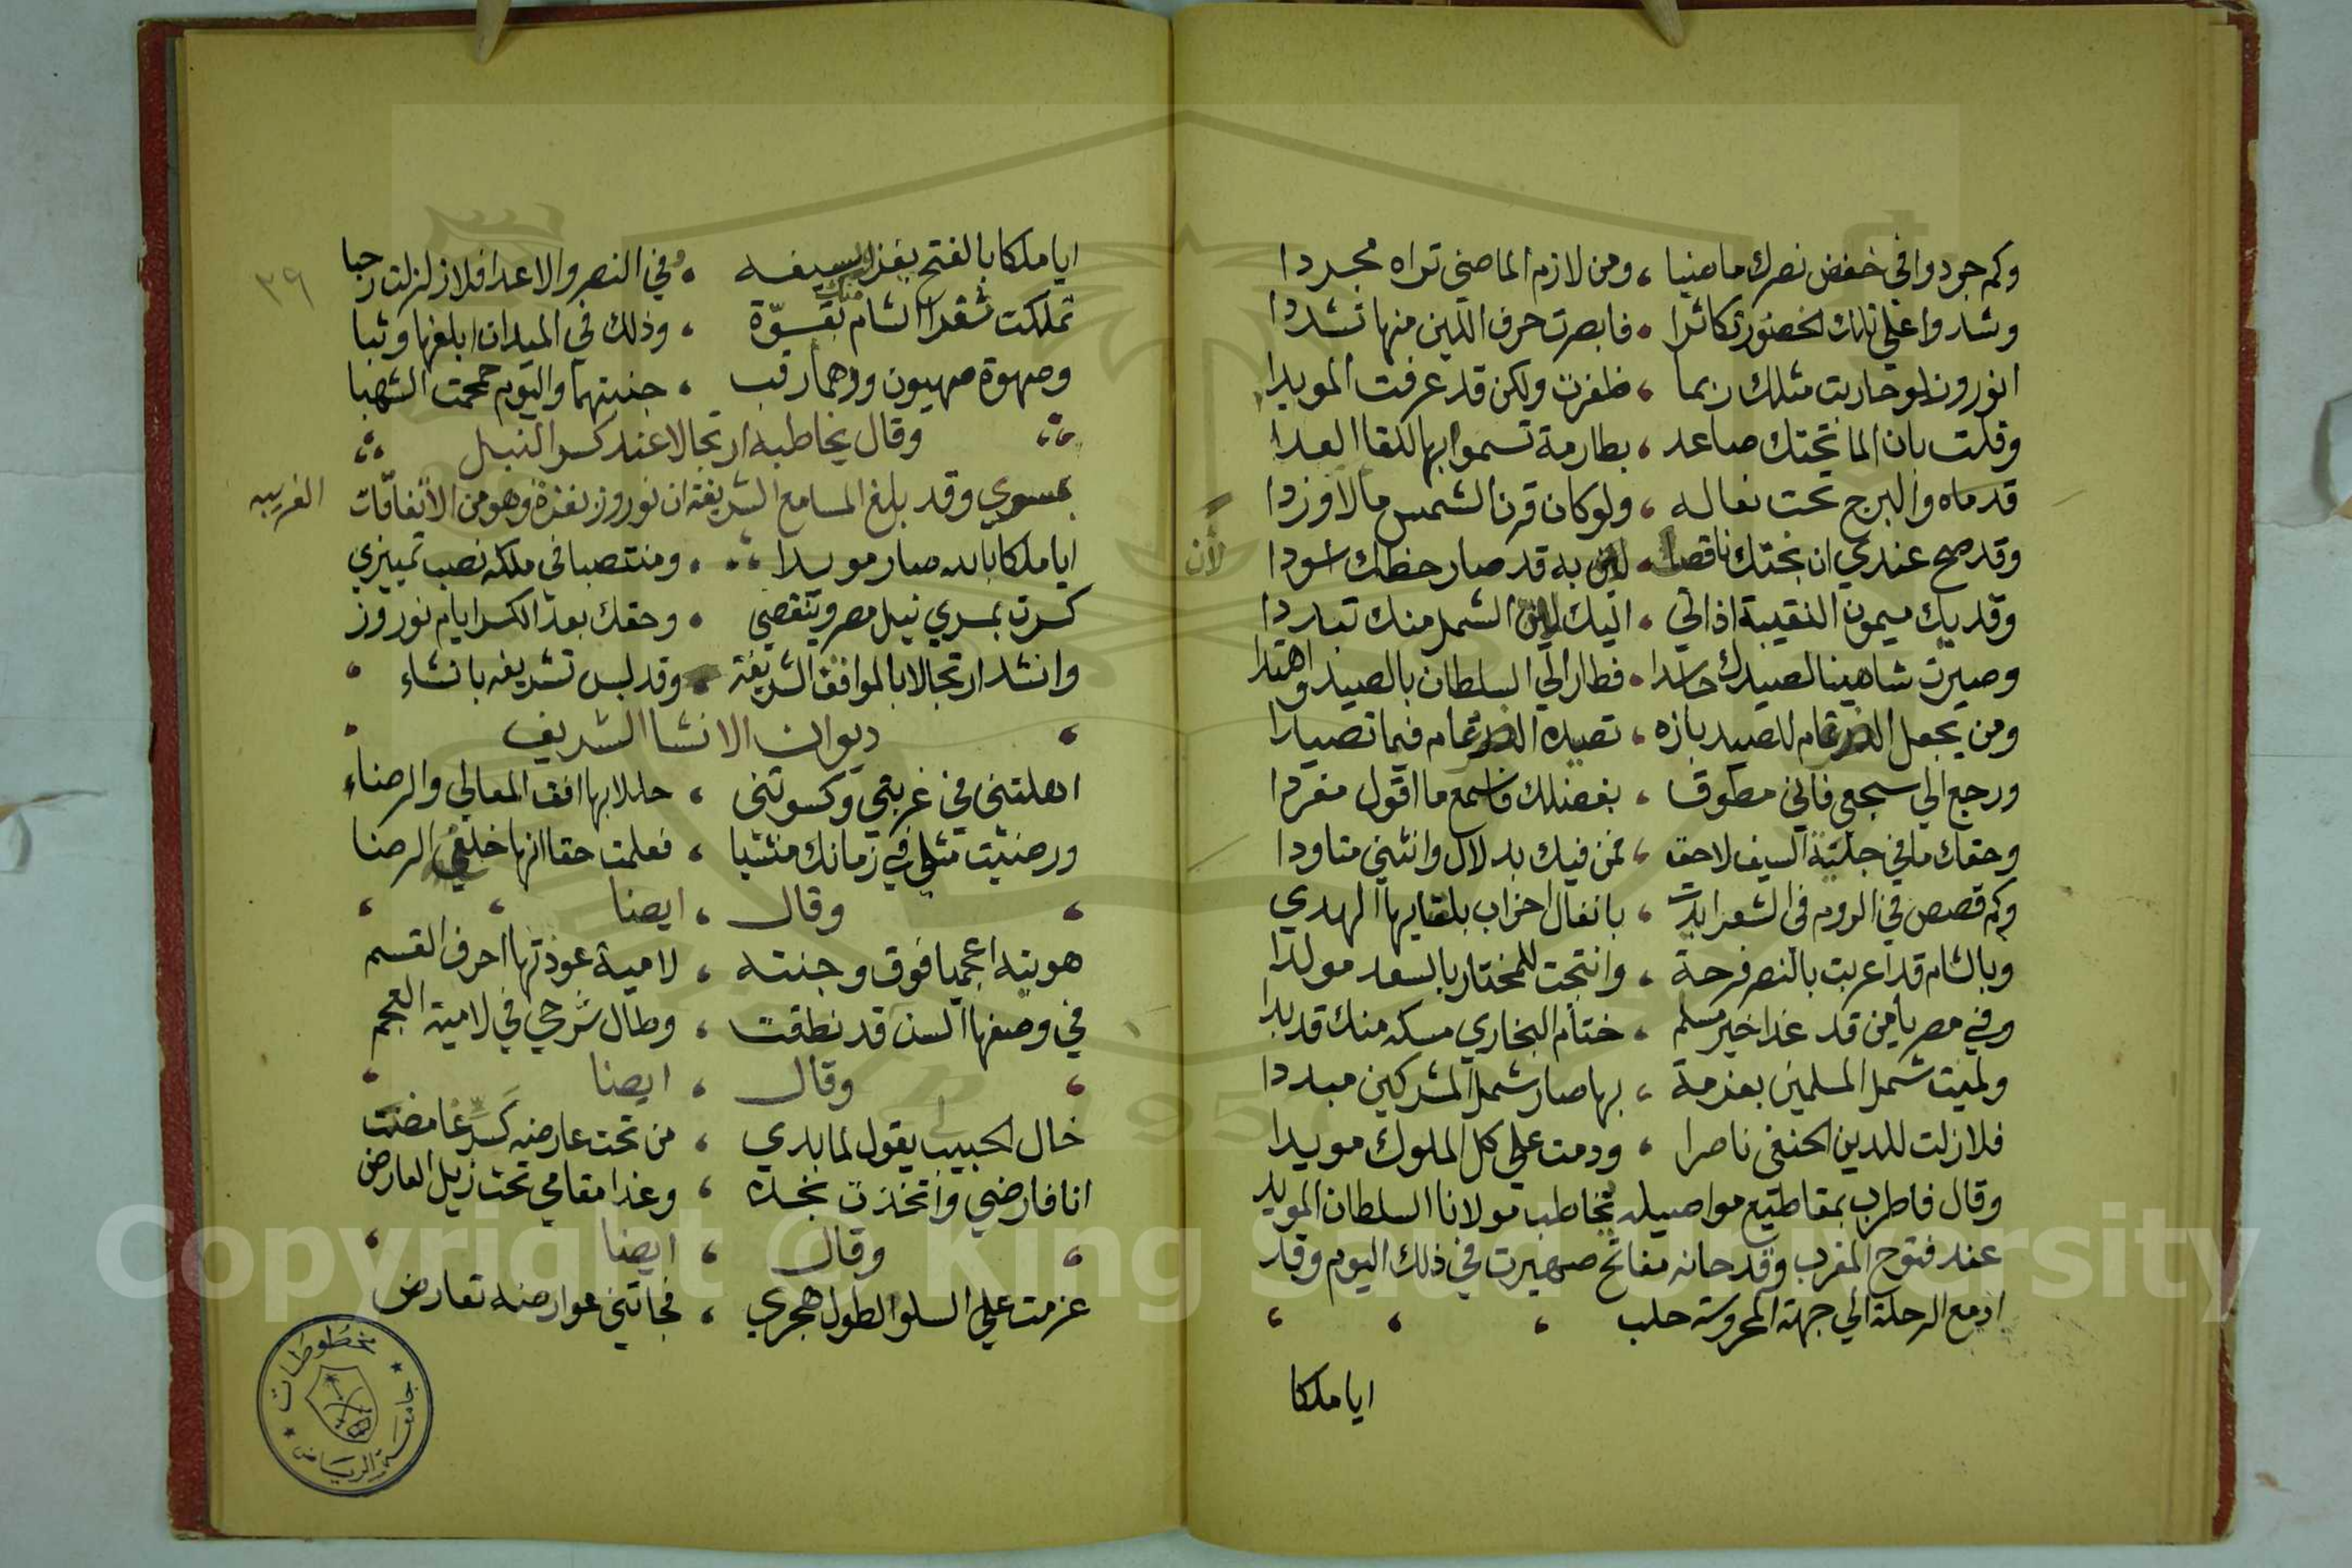 وكم جردوا في خفض نصرك ماضيا ، ومن لازم الماضي تراه مجردا
وشدوا على تلك الخصور تكاثرا ، فابصرت حرف اللين منها تشددا
انوروز لو حاربت مثلك ربما ، ظفرت ولكن قد عرفت المويدا
وقلت بان الما تحتك صاعد ، بطارمة تسموا بها للقا العدا
قدماه والبرج تحت نعاله ، ولو كان قرن الشمس مالاوزدا
وقد صح عندي ان بختك ناقصا ، لان به قد صار حظك اسودا
لأن
وقد يك ميمون النقيبة اذ اتي ، اليك لان الشمل منك تبددا
وصيرت شاهينا لصيدك حاسدا ، فطار الي السلطان بالصيد واهتدا
ومن يجعل الضرغام للصيد بازه ، تصيده الضرغام فيما تصيدا
ورجع الي سجعي فاني مطوق ، بفضلك فاسمع ما اقول مغردا
وحقك ما في حلية السيف لاحق ، فمن فيك بدلال وانثني متاودا
وكم قصص في الروم في الشعر ابدت ، بانفال احزاب بلقايها الهدي
وبالشام قد اعربت بالنصر فرحة ، وانتجت للمختار بالسعد مولدا
وفي مصر يا من قد غدا خير مسلم ، ختام البخاري مسكه منك قد بدا
ولميت شمل المسلمين بعزمة ، بها صار شمل المشركين مبددا
فلا زلت للدين الحنفي ناصرا ، ودمت علي كل الملوك مويدا
وقال فاطرب بمقاطيع مواصيله يخاطب مولانا السلطان المويد
عند فتوح المغرب وقد حانه مفاتح صهيرت في ذلك اليوم وقد
ازمع الرحلة الي جهة المحروسة حلب
ايا ملكا
٣٩
ايا ملكا بالفتح بسيفه ، وفي النصر والاعدا فلا زلزلت رحبا
تملكت شقرا الشام منك بقوّة ، وذلك في الميدان ابلغها وثبا
وصهوة صهيون ودهما رقب ، جنبتهما واليوم حمحمت الشهبا
وقال يخاطبه ارتجالا عند كسر النيل
بمسري وقد بلغ المسامع الشريفة ان نوروز بغزة وهو من الاتفاقات الغريبه
ايا ملكا بالله صار مويدا ، ومنتصبا في ملكه نصب تمييزي
كسرت بمسري نيل مصر وينقضي ، وحقك بعد الكسر ايام نوروز
وانشد ارتجالا بالمواقف الشريفة ، وقد لبس تشريفه بانشاء
ديوان الانشا الشريف
اهلتني في غربتي وكسوتني ، حللا بها افق المعالي والرضاء
ورضيت مثلي في زمانك منشيا ، فعلمت حقا انها خلع الرضا
وقال ، ايضا
هويته اعجميا فوق وجنته ، لامية عوذتها احرف القسم
في وصفها السن قد نطقت ، وطال شرحي في لامية العجم
وقال ، ايضا
خال الحبيب يقول لما بدي ، من تحت عارضه كسر غامضت
انا فارضي واتخذت بخده ، وغدا مقامي تحت زيل العارض
وقال ، ايضا
عزمت علي السلو لطول هجري ، فجاتني عوارضه تعارض
مخطوطات
جامعة الرياض
Copyright © King Saud University
1957